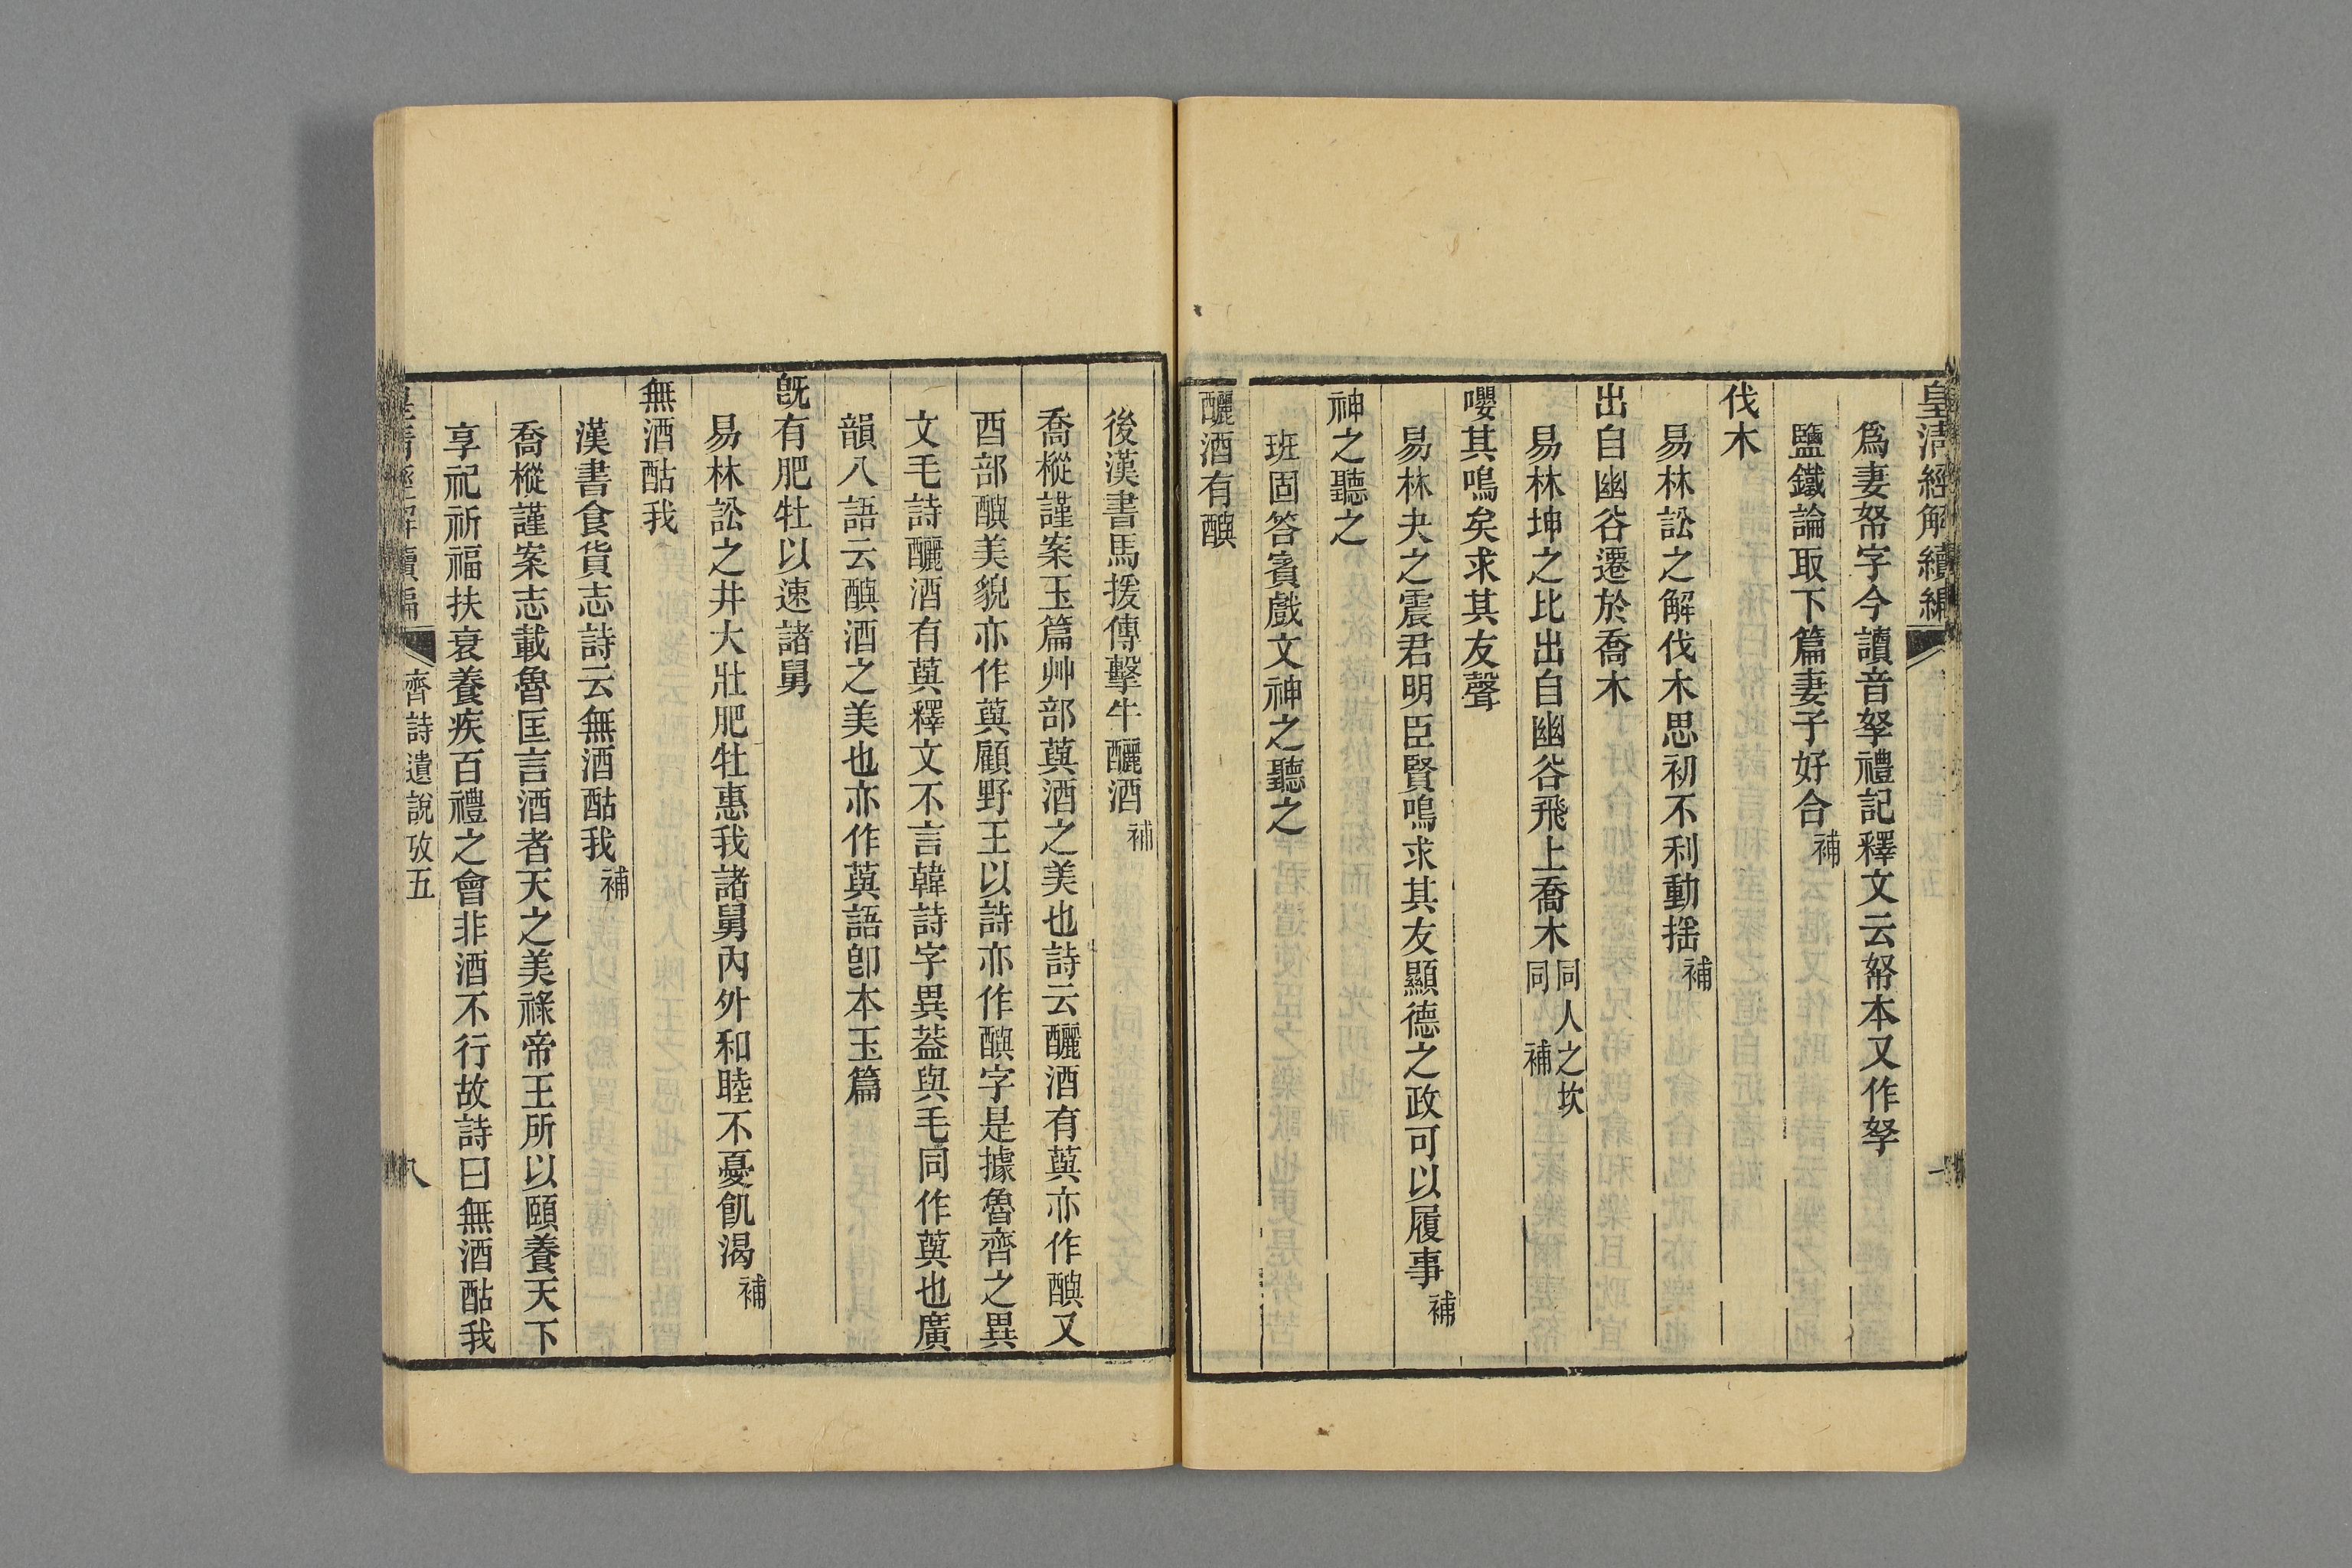 皇清經解續編
爲妻帑字今讀音孥禮記釋文云帑本又作孥
鹽鐵論取下篇妻子好合補
伐木
易林訟之解伐木思初不利動搖補
出自幽谷遷於喬木
易林坤之比出自幽谷飛上喬木同人之坎同補
嚶其鳴矣求其友聲
易林夬之震君明臣賢鳴求其友顯德之政可以履事補
神之聽之
班固答賓戲文神之聽之
釃酒有醹
後漢書馬援傳擊牛釃酒補
喬樅謹案玉篇艸部藇酒之美也詩云釃酒有藇亦作醹又
酉部醹美貌亦作藇顧野王以詩亦作醹字是據魯齊之異
文毛詩釃酒有藇釋文不言韓詩字異葢與毛同作藇也廣
韻八語云醹酒之美也亦作藇語卽本玉篇
旣有肥牡以速諸舅
易林訟之井大壯肥牡惠我諸舅內外和睦不憂飢渴補
無酒酤我
漢書食貨志詩云無酒酤我補
喬樅謹案志載魯匡言酒者天之美祿帝王所以頤養天下
享祀祈福扶衰養疾百禮之會非酒不行故詩曰無酒酤我
皇清經解續編 齊詩遺說攷五 八